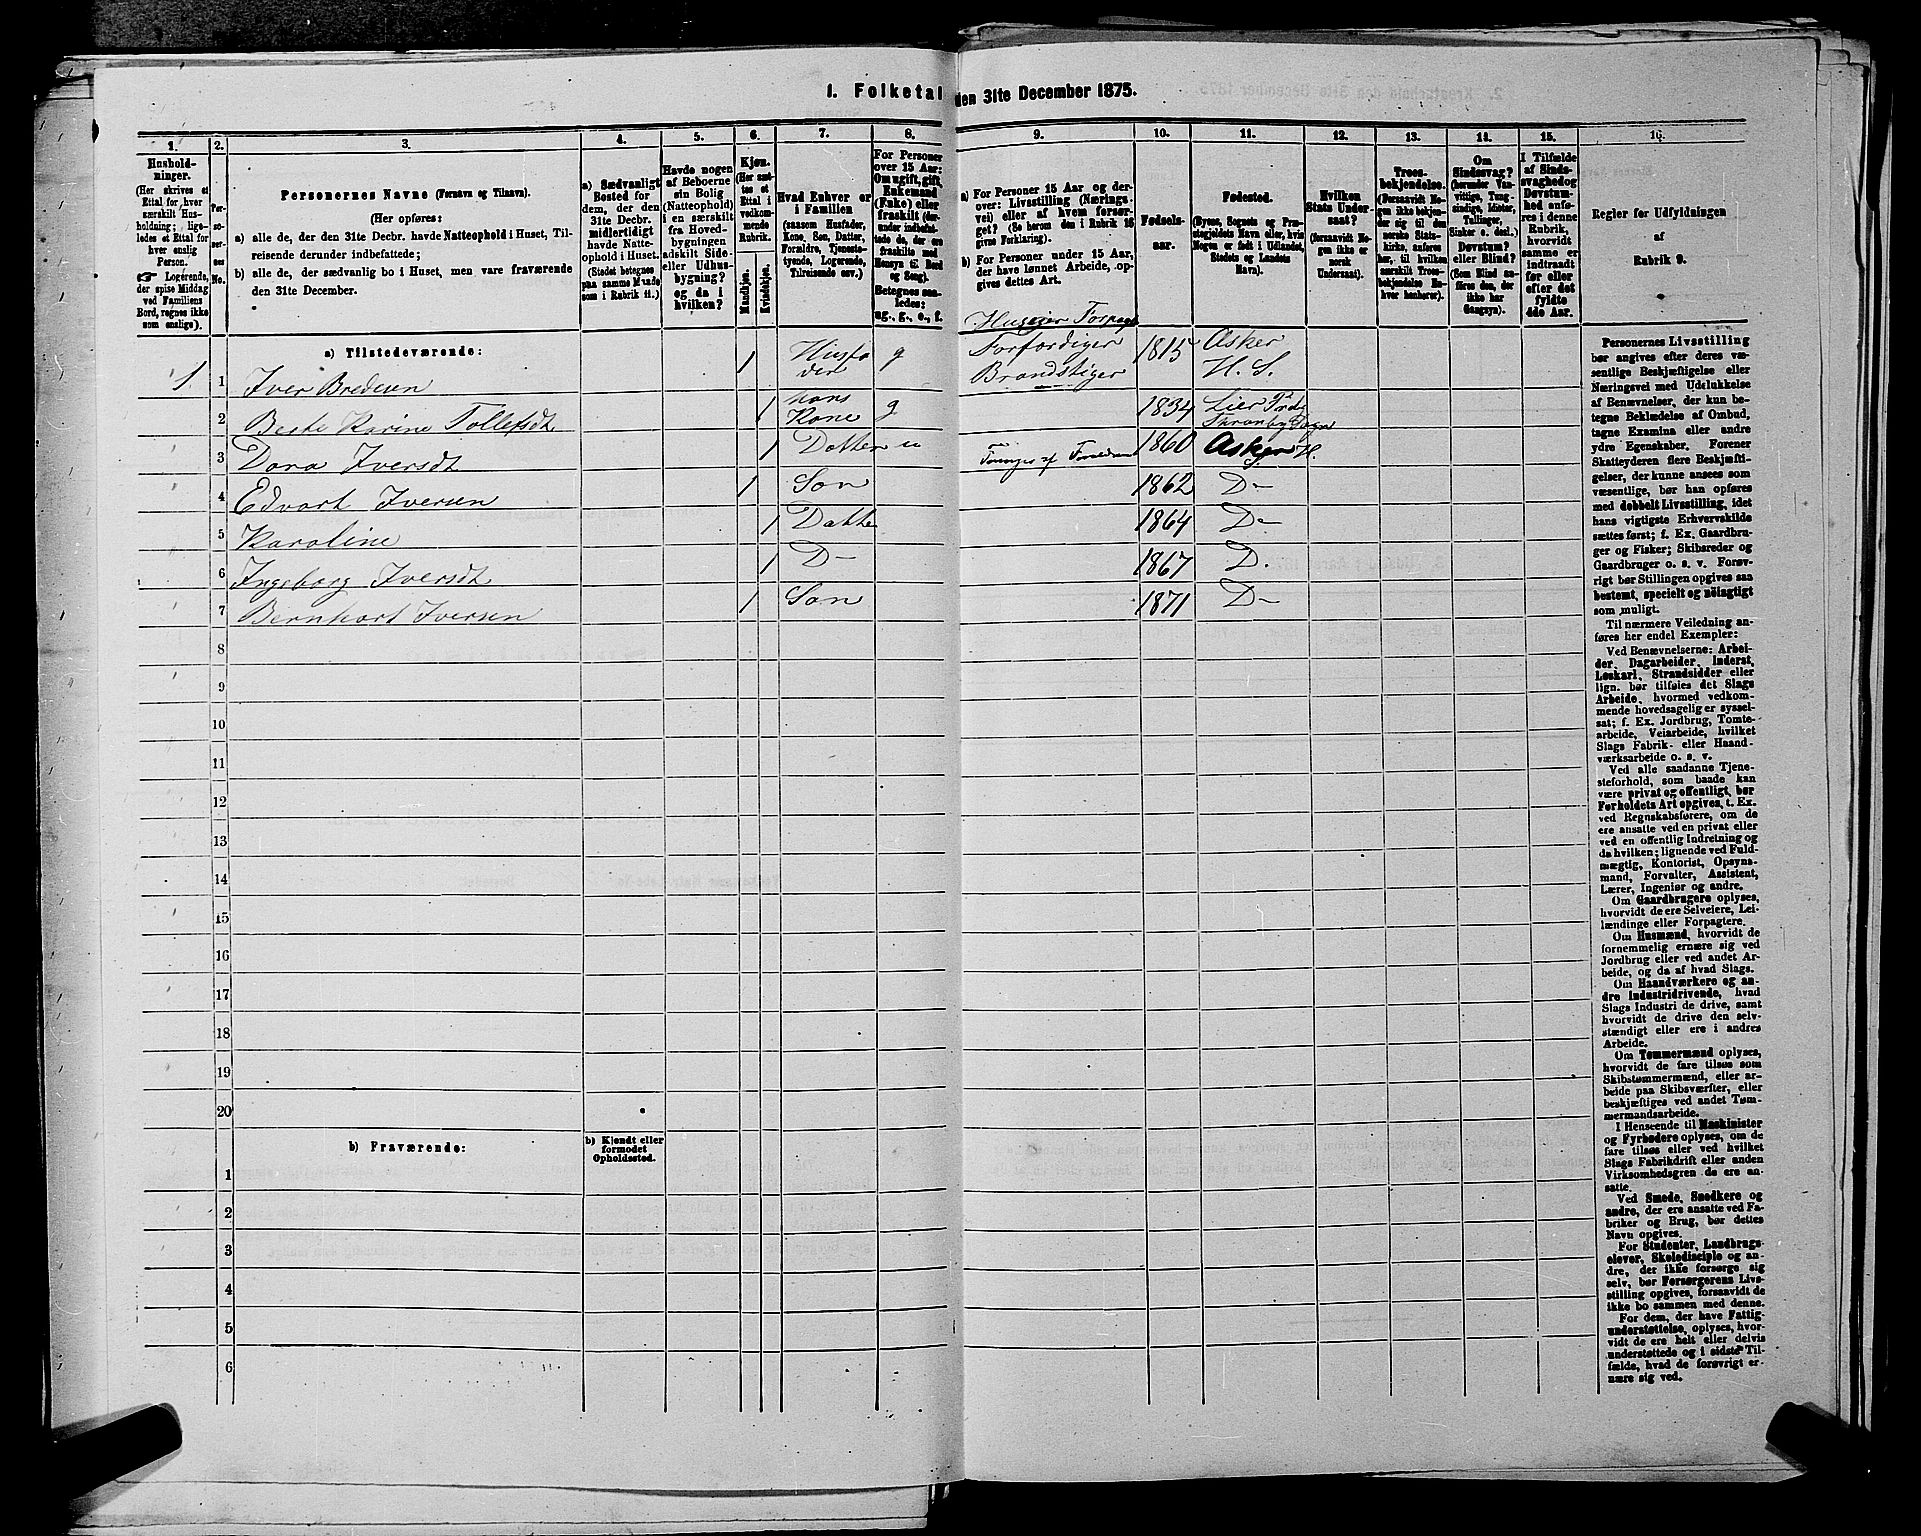 1. Folketal den 31te December 1875.
1. 2. 3. 4. 5. 6. 7. 8. 9. 10. 11. 12. 13. 14. 15. 16.
Hushold-
ninger.
(Her skrives et
Ettal for hver
særskilt Hus-
holdning; lige-
ledes et Ettal for
hver enslig
Person.
☞ Logerende,
der spise Middag
ved Familiens
Bord, regnes ikke
som enslige).
Per-
so-
ner-
nes
No.
Personernes Navne (Fornavn og Tilnavn).
(Her opføres:
a) alle de, der den 31te Decbr. havde Natteophold i Huset, Til-
reisende derunder indbefattede;
b) alle de, der sædvanlig bo i Huset, men vare fraværende
den 31te December.
a) Sædvanligt
Bosted for
dem, der den
31te Decbr.
midlertidigt
havde Natte-
ophold i Huset.
(Stedet betegnes
paa samme Maade
som i Rubrik 11.)
Havde nogen
af Beboerne
sin Bolig
(Natteophold)
i en særskilt
fra Hoved-
bygningen
adskilt Side-
eller Udhus-
bygning?
og da i
hvilken?
Kjøn.
(Her sæt-
tes et
Ettal i
vedkom-
mende
Rubrik.
Mandkjøn.
Kvindekjøn.
Hvad Enhver er
i Familien
(saasom Husfader,
Kone, Søn, Datter,
Forældre, Tjeneste-
tyende, Logerende,
Tilreisende osv.)
For Personer
over 15 Aar:
Om ugift, gift,
Enkemand
(Enke) eller
fraskilt (der-
under indbefat-
tede de, der ere
fraskilte med
Hensyn til Bord
og Seng).
Betegnes saa-
ledes:
ug., g., e., f.
a) For Personer 15 Aar og der-
over: Livsstilling (Nærings-
vei) eller af hvem forsør-
get? (Se herom den i Rubrik 16
givne Forklaring).
b) For Personer under 15 Aar,
der have lønnet Arbeide, op-
gives dettes Art.
Fødsels-
aar.
Fødested.
(Byens, Sognets og Præ-
stegjeldets Navn eller, hvis
Nogen er født i Udlandet,
Stedets og Landets
Navn).
Hvilken
Stats Under-
saat?
(forsaavidt No-
gen ikke er
norsk
Undersaat).
Troes-
bekjendelse.
(Forsaavidt No-
gen ikke bekjen-
der sig til den
norske Stats-
kirke, anføres
her, til hvilken
særskilt Troes-
bekjendelse En-
hver henhører).
Om
Sindssvag?
(herunder Van-
vittige, Tung-
sindige, Idioter,
Tullinger,
Sinker o. desl.)
Døvstum?
eller Blind?
(Som Blind an-
føres den, der
ikke har
Gangsyn).
I Tilfælde
af Sinds-
svaghed og
Døvstum-
hed anfø-
res i denne
Rubrik,
hvorvidt
samme er
indtraadt
før eller
efter det
fyldte
4de Aar.
Regler for Udfyldningen
af
Rubrik 9.
a) Tilstedeværende:
Huseier Forpagt
1 1 Iver Bredesen 1 Husfa
der g Forfærdiger
Brandstiger 1815 Asker
H. S.
2 Beate Karine Tollefsdt 1 hans
Kone g 1834 Lier
3 Dora Iversdt 1 Datter u 1860 Asker H.
4 Edvart Iversen 1 Søn 1862 D-
5 Karoline 1 Datte 1864 D-
6 Ingeborg Iversdt 1 D- 1867 D.
7 Bernhart Iversen 1 Søn 1871 D-
8
9
10
11
12
13
14
15
16
17
18
19
20
b) Fraværende:
b) Kjendt eller
formodet
Opholdssted.
1
2
3
4
5
6
Personernes Livsstilling
bør angives efter deres væ-
sentlige Beskjæftigelse eller
Næringsvei med Udelukkelse
af Benævnelser, der kun be-
tegne Beklædelse af Ombud,
tagne Examina eller andre
ydre Egenskaber. Forener
Skatteyderen flere Beskjæfti-
gelser, der kunne ansees som
væsentlige, bør han opføres
med dobbelt Livsstilling, idet
hans vigtigste Erhvervskilde
sættes først; f. Ex. Gaardbru-
ger og Fisker; Skibsreder og
Gaardbruger o. s. v. Forøv-
rigt bør Stillingen opgives saa
bestemt, specielt og nøiagtigt
som muligt.
Til nærmere Veiledning an-
føres her endel Exempler:
Ved Benævnelserne: Arbei-
der, Dagarbeider, Inderst,
Løskarl, Strandsidder eller
lign. bør tilføies det Slags
Arbeide, hvormed vedkom-
mende hovedsagelig er syssel-
sat; f. Ex. Jordbrug, Tomte-
arbeide, Veiarbeide, hvilket
Slags Fabrik- eller Haand-
værksarbeide o. s. v.
Ved alle saadanne Tjene-
steforhold, som baade kan
være privat og offentligt, bør
Forholdets Art opgives, t. Ex.
ved Regnskabsførere, om de
ere ansatte ved en privat eller
ved en offentlig Indretning og
da hvilken; lignende ved Fuld-
mægtig, Kontorist, Opsyns-
mand, Forvalter, Assistent,
Lærer, Ingeniør og andre.
Om Gaardbrugere oplyses,
hvorvidt de ere Selveiere, Lei-
lændinge eller Forpagtere.
Om Husmænd, hvorvidt de
fornemmelig ernære sig ved
Jordbrug eller ved andet Ar-
beide, og da af hvad Slags.
Om Haandværkere og an-
dre Industridrivende, hvad
Slags Industri de drive, samt
hvorvidt de drive den selv-
stændigt eller ere i andres
Arbeide.
Om Tømmermænd oplyses,
hvorvidt de fare tilsøs som
Skibstømmermænd, eller ar-
beide paa Skibsværfter, eller
beskjæftiges ved andet Tøm-
mermandsarbeide.
I Henseende til Maskinister
og Fyrbødere oplyses, om de
fare tilsøs eller ved hvilket
Slags Fabrikdrift eller anden
Virksomhedsgren de ere an-
satte.
Ved Smede, Snedkere og
andre, der ere ansatte ved Fa-
briker og Brug, bør dettes
Navn opgives.
For Studenter, Landbrugs-
elever, Skoledisciple og an-
dre, der ikke forsørge sig
selv, bør Forsørgerens Livs-
stilling opgives, forsaavidt de
ikke bo sammen med denne.
For dem, der have Fattig-
understøttelse, oplyses, hvor-
vidt de ere helt eller delvis
understøttede og i sidste Til-
fælde, hvad de forøvrigt er-
nære sig ved.